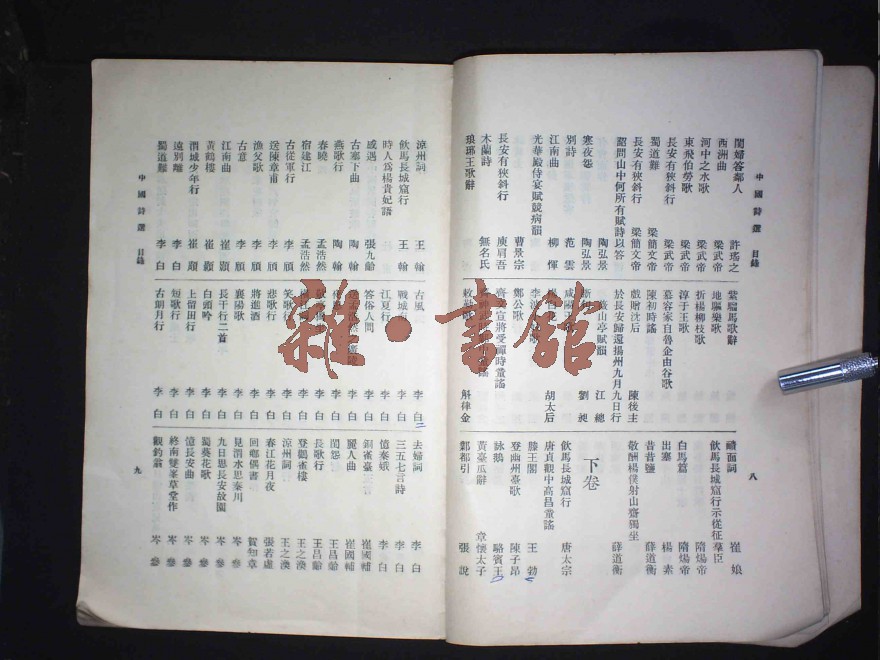 中國詩選 目錄
閨婦答鄰人 許瑤之
西洲曲 梁武帝
河中之水歌 梁武帝
東飛伯勞歌 梁武帝
長安有狹斜行 梁武帝
蜀道難 梁簡文帝
長安有狹斜行 梁簡文帝
詔問山中何所有賦詩以答 陶弘景
寒夜怨 陶弘景
別詩 范雲
江南曲 柳惲
光華殿侍宴賦競病韻 曹景宗
長安有狹斜行 庾肩吾
木蘭詩 無名氏
瑯琊王歌辭
紫騮馬歌辭
地驅樂歌
折楊柳枝歌
淳于王歌
慕容家自魯企由谷歌
陳初時謠
戲贈沈后 陳後主
於長安歸還揚州九月九日行
薇山亭賦韻 江總
劉昶
咸陽王歌
胡太后
李波小妹歌
鄭公歌
宣將受禪時童謠
敕勒歌 斛律金
靧面詞 崔娘
飲馬長城窟行示從征羣臣 隋煬帝
白馬篇 隋煬帝
出塞 楊素
昔昔鹽 薛道衡
敬酬楊僕射山齋獨坐 薛道衡
下卷
飲馬長城窟行 唐太宗
唐貞觀中高昌童謠
滕王閣 王勃
登幽州臺歌 陳子昂
詠鵝 駱賓王
黃臺瓜辭 章懷太子
鄴都引 張說
八
涼州詞 王翰
飲馬長城窟行 王翰
時人為楊貴妃語
感遇 張九齡
古塞下曲 陶翰
燕歌行 陶翰
春曉 孟浩然
宿建江 孟浩然
古從軍行 李頎
送陳章甫 李頎
漁父歌 李頎
古意 李頎
江南曲 崔顥
黃鶴樓 崔顥
渭城少年行 崔顥
遠別離 李白
蜀道難 李白
古風 李白
戰城南 李白
江夏行 李白
答俗人問 李白
李白
李白
李白
李白
笑歌行 李白
悲歌行 李白
將進酒 李白
襄陽歌 李白
長干行二首 李白
白頭吟 李白
上留田行 李白
短歌行 李白
古朗月行 李白
去婦詞 李白
三五七言詩 李白
憶秦娥 李白
銅雀臺 崔國輔
麗人曲 崔國輔
閨怨 王昌齡
長歌行 王昌齡
登鸛雀樓 王之渙
涼州詞 王之渙
春江花月夜 張若虛
回鄉偶書 賀知章
見渭水思秦川 岑參
九日思長安故園 岑參
蜀葵花歌 岑參
憶長安曲 岑參
終南雙峯草堂作 岑參
觀釣翁 岑參
中國詩選 目錄
九
雜·書館